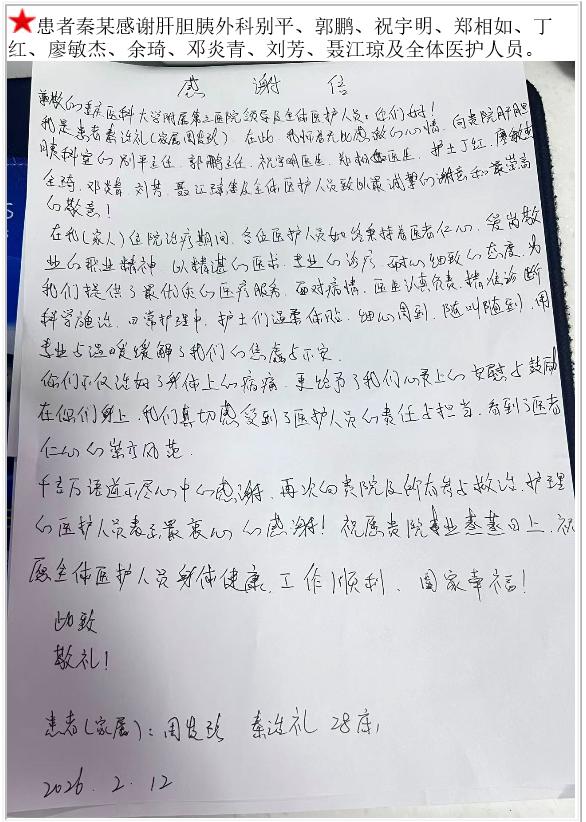 ★患者秦某感谢肝胆胰外科别平、郭鹏、祝宇明、郑相如、丁
红、廖敏杰、余琦、邓炎青、刘芳、聂江琼及全体医护人员。
感谢信
尊敬的重庆医科大学附属第三医院领导及全体医护人员：你们好！
我是患者秦连礼（家属周发珍）. 在此, 我怀着无比感激的心情, 向贵院肝胆
胰科室的别平主任, 郭鹏主任, 祝宇明医生, 郑相如医生, 护士丁红, 廖敏杰
余琦, 邓炎青 刘芳, 聂江琼及全体医护人员致以最诚挚的谢意和最崇高
的敬意！
在我(家人)住院治疗期间, 各位医护人员始终秉持着医者仁心, 爱岗敬
业的职业精神 以精湛的医术, 专业的诊疗 耐心细致的态度, 为
我们提供了最优质的医疗服务, 面对病情, 医生认真负责, 精准诊断
科学施治, 日常护理中, 护士们温柔体贴, 细心周到, 随叫随到, 用
专业与温暖缓解了我们的焦虑与不安.
你们不仅治好了身体上的病痛, 更给予了我们心灵上的安慰与鼓励
在你们身上, 我们真切感受到了医护人员的责任与担当, 看到了医者
仁心的崇高风范.
千言万语道不尽心中的感谢, 再次向贵院及所有参与救治, 护理
的医护人员表示最衷心的感谢！祝愿贵院事业蒸蒸日上, 祝
愿全体医护人员身体健康, 工作顺利、阖家幸福！
此致
敬礼！
患者(家属)：周发珍 秦连礼 28床
2026. 2. 12